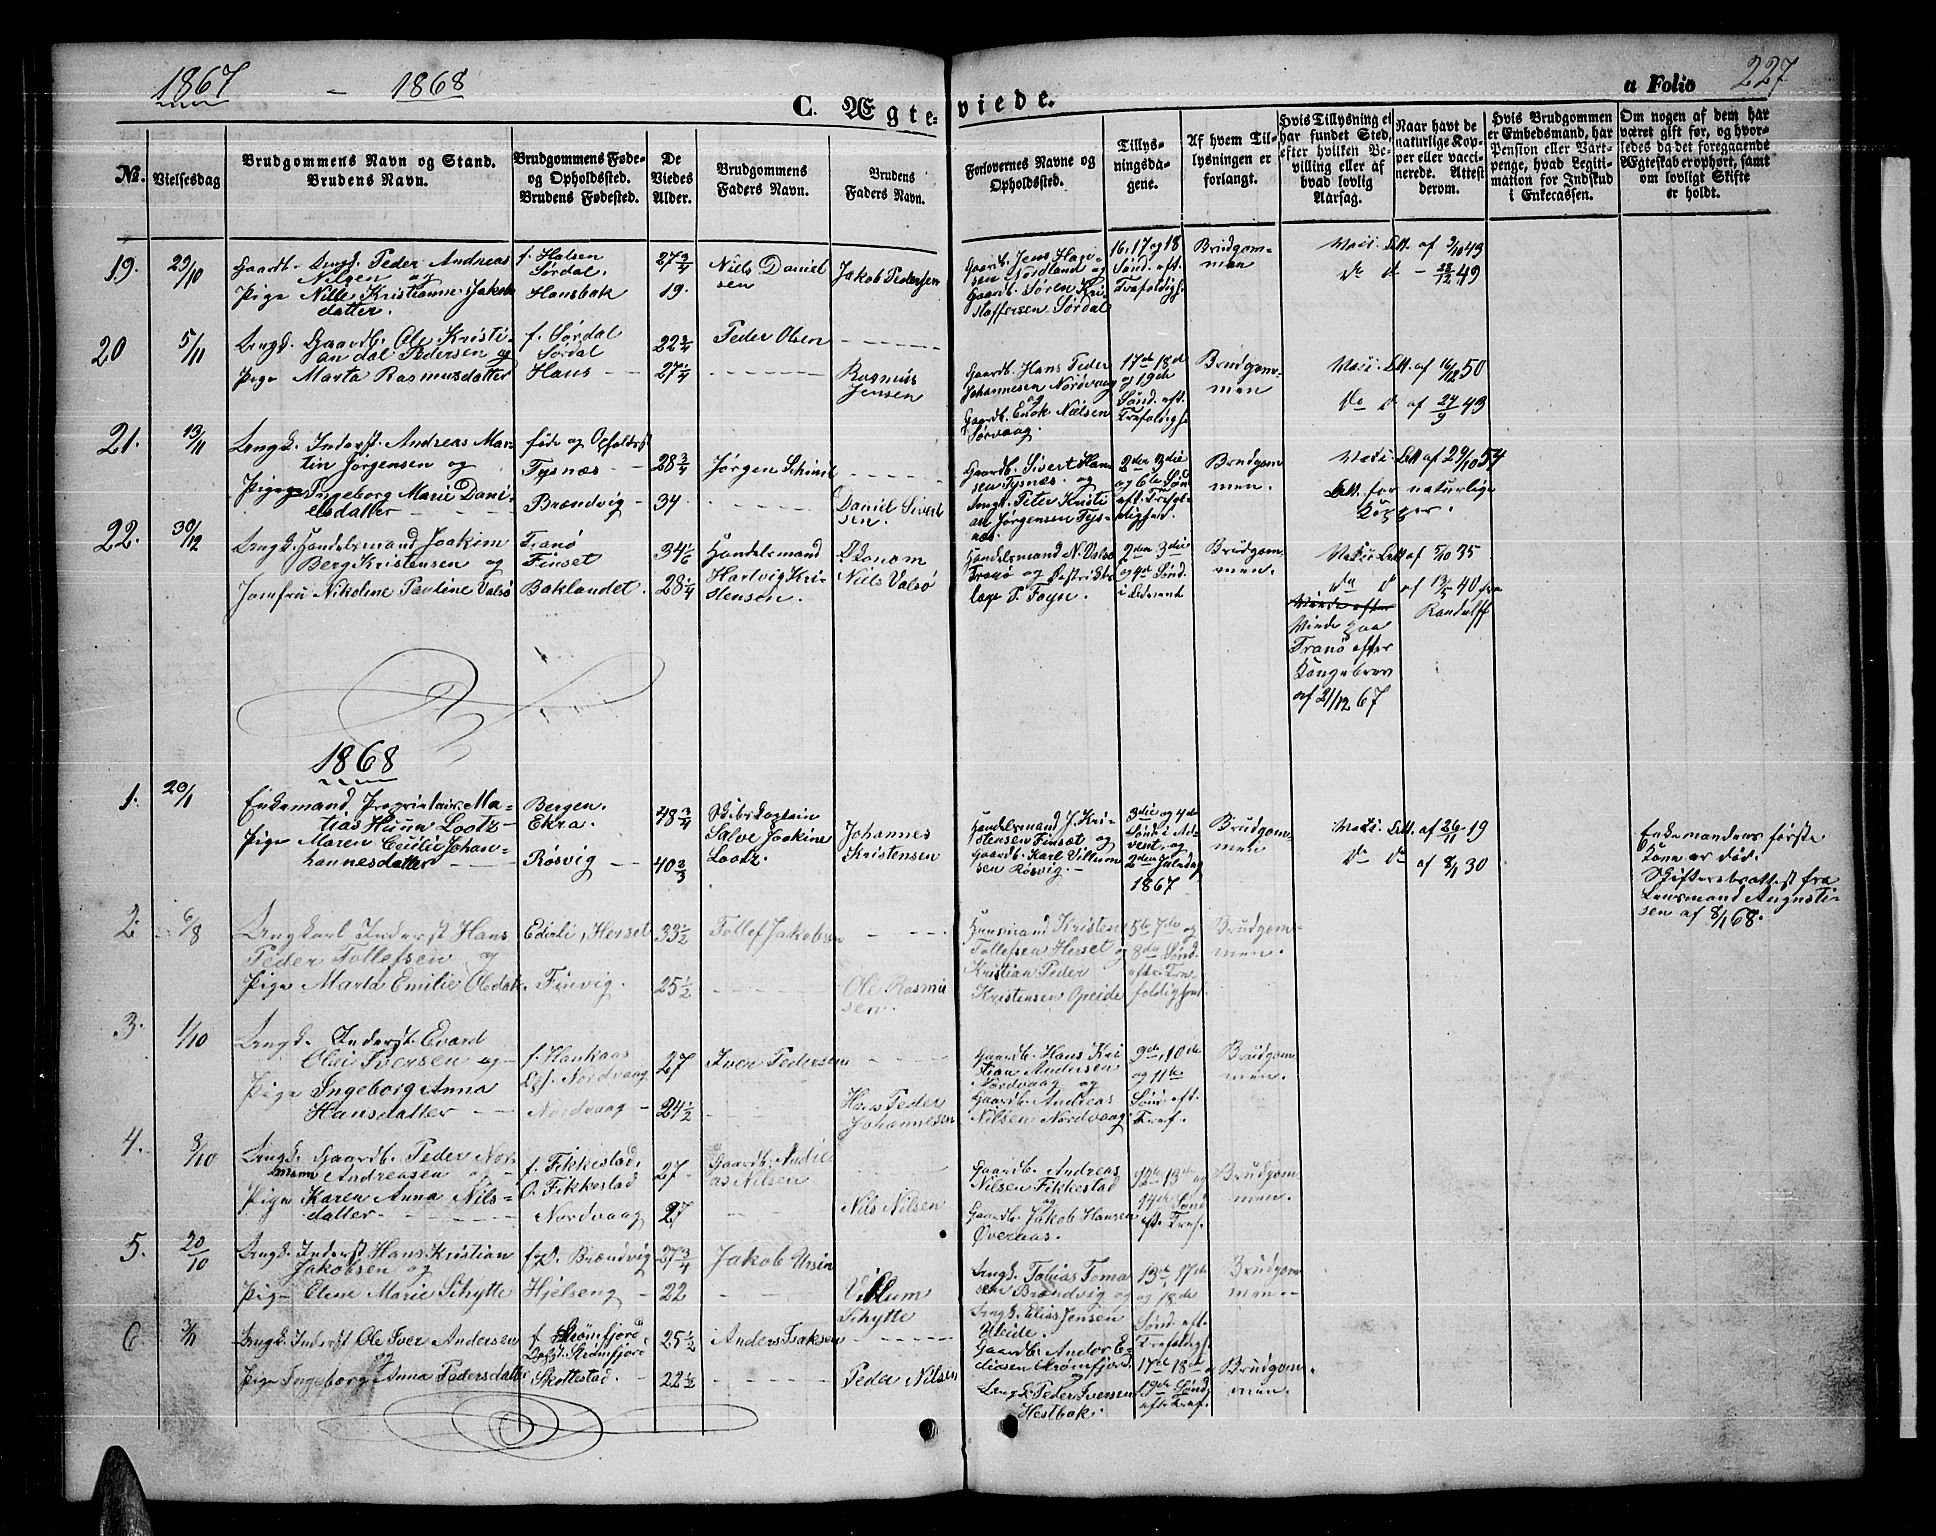 1867 - 1868
C. Ægteviede.
a Folio 227
No.
Vielsesdag
Brudgommens Navn og Stand.
Brudens Navn.
Brudgommens Føde-
og Opholdssted.
Brudens Fødested.
De
Viedes
Alder.
Brudgommens
Faders Navn.
Brudens
Faders Navn.
Forlovernes Navne og
Opholdssted.
Tillys-
ningsda-
gene.
Af hvem Til-
lysningen er
forlangt.
Hvis Tillysning ei
har fundet Sted,
efter hvilken Be-
villing eller af
hvad lovlig
Aarsag.
Naar havt de
naturlige Kop-
per eller vacci-
nerede. Attest
derom.
Hvis Brudgommen
er Embedsmand, har
Pension eller Vart-
penge, hvad Legiti-
mation for Indskud
i Enkecassen.
Om nogen af dem har
været gift før, og hvor-
ledes da det foregaaende
Ægteskab er ophørt, samt
om lovligt Skifte
er holdt.
19. 29/10
Gaardb. Ungk. Peder Andreas
Nilsen og
Pige Nille Kristianne Jakob
datter.
f. Halsen
Sørdal.
Hansbak
27 3/4
19.
Niels Daniel
sen
Jakob Pedersen
Gaardb. Jens Hag-
sen Nordland og
Gaardb. Søren Kri
stoffersen Sørdal
16. 17 og 18
Sønd. eft.
Trefoldigh.
Brudgom-
men
Vaci. Att. af 9/10 43
do d - 28/12 49
20 5/11
Ungk. Gaardb. Ole Kristi-
an dal Pedersen og
Pige Marta Rasmusdatter
f. Sørdal
Sørdal
Hans
22 3/4
27 1/4
Peder Olsen
Rasmus
Jensen
Gaardb. Hans Peder
Johannesen Nordvaag
og
Gaardb. Enok Nielsen
Sørvaag.
17de 18de
og 19de
Sønd. eft.
Trefoldigh.
Brudgom-
men
Vaci. Att. af 16/12 50
do d af 24/9 43
21. 13/11
Ungk. Inderst. Andreas Mar-
tin Jørgensen og
Pige Ingeborg Marie Dani-
elsdatter
føde og Opholdsst
Tysnæs
Brændvig
28 3/4
34
Jørgen Schind
Daniel Sivert
sen.
Gaardb. Sivert Han
sen Tysnæs. og
Ungk. Peter Kristi
an Jørgensen Tys-
næs.
2den 3die
og 6te Sønd
eft. Trefol-
dighed.
Brudgom-
men.
Vaci. Att af 29/10 54
Att. for naturlige
Kopper.
22. 30/12
Ungk. Handelsmand Joakim
Berg Kristensen og
Jomfru Nikoline Pauline Valsø
Tranø
Finset
Baklandet.
34 1/6
28 1/4
Handelsmand
Hartvig Kri-
stensen.
Økonom
Niels Valsø
Handelsmand N. Valsø
Tranø og Distrikts
læge T. Foyn.
2den 3die
og 4de Sønd
i Advent
Brudgom-
men.
Vaci. Att af 5/10 35
do d af 13/5 40 fra
Randulff
Viede efter
Viede paa
Tranø efter
Kongebrev
af 21/12 67
1868
1. 20/1
Enkemand Proprietair. Ma-
tias Huun Lootz
Pige Maren Cecilie Johan-
hannesdatter
Bergen.
Ekra.
Røsvig
48 3/4
40 2/3
Skibskaptein
Salve Joakim
Lootz.
Johannes
Kristensen
Handelsmand J. Kri-
stensen Finsæt og
Gaardb. Karl Villum
sen Røsvig.
3die og 4de
Sønd i Ad-
vent, og
2den Juledag
1867
Brudgom-
men
Vaci. Att. af 26/11 19
do do af 8/1 30
Enkemandens første
Kone er død.
Skifteattest fra
Lensmand Augusti-
sen af 8/1 68.
2. 6/8
Ungkarl Inderst Hans
Peder Tollefsen og
Pige Marta Emilie Olsdat.
Ederli, Herset
Finvig.
33 1/2
25 1/2
Tollef Jakobsen
Ole Rasmus
sen.
Huusmand Kristen
Tollefsen Herset og
Kristian Peder
Kristensen Opeide
5te 7de og
8de Sønd.
eft. Tre-
foldighed.
Brudgom-
men.
3. 1/10
Ungk. Inderst. Evard
Olai Iversen og
Pige Ingeborg Anna
Hansdatter
f. Hankaas
Opf. Nordvaag
Nordvaag
27
24 1/2
Iver Pedersen
Hans Peder
Johannesen
Gaardb. Hans Kri
stian Andersen
Nordvaag og
Gaardb. Andreas
Nilsen Nordvaag
9de, 10de
og 11te
Sønd. eft.
Tref.
Brudgom-
men.
4. 8/10
Ungk. Gaardb. Peder Nor-
mann Andreasen og
Pige Karen Anna Nils-
datter.
f. Fikkestad.
O. Fikkestad
Nordvaag
27.
27
Gaardb. Andre
as Nilsen
Nils Nilsen
Gaardb. Andreas
Nilsen Fikkestad
og
Gaardb. Jakob Hansen
Øvernas.
12te 13de og
14de Sønd
eft. Tref.
Brudgom-
men.
5. 20/10
Ungk. Inderst Hans Kristian
Jakobsen og
Pige Elene Marie Schytte
f. O. Brændvig
Hjelseng
27 3/4
22
Jakob Ursin
Villum
Schytte
Ungk. Tobias Toma
sen Brændvig og
Ungk. Elias Jensen
Uleide.
13de, 17de
og 18de
Sønd. eft.
Trefoldigh.
Brudgom
men.
6. 3/11
Ungk. Inderst Ole Iver Andersen
og
Pige Ingeborg Anna Pedersdatter
f. Strømfjord,
Opf. Strømfjord
Skottestad.
25 1/2
22 1/2
Anders Isaksen
Peder Nilsen
Gaardb. Andor E-
diasen Strømfjord.
og
Ungk. Peder Iversen
Hestbak.
17de 18de og
19de Sønd
eft. Tref.
Brudgom-
men.